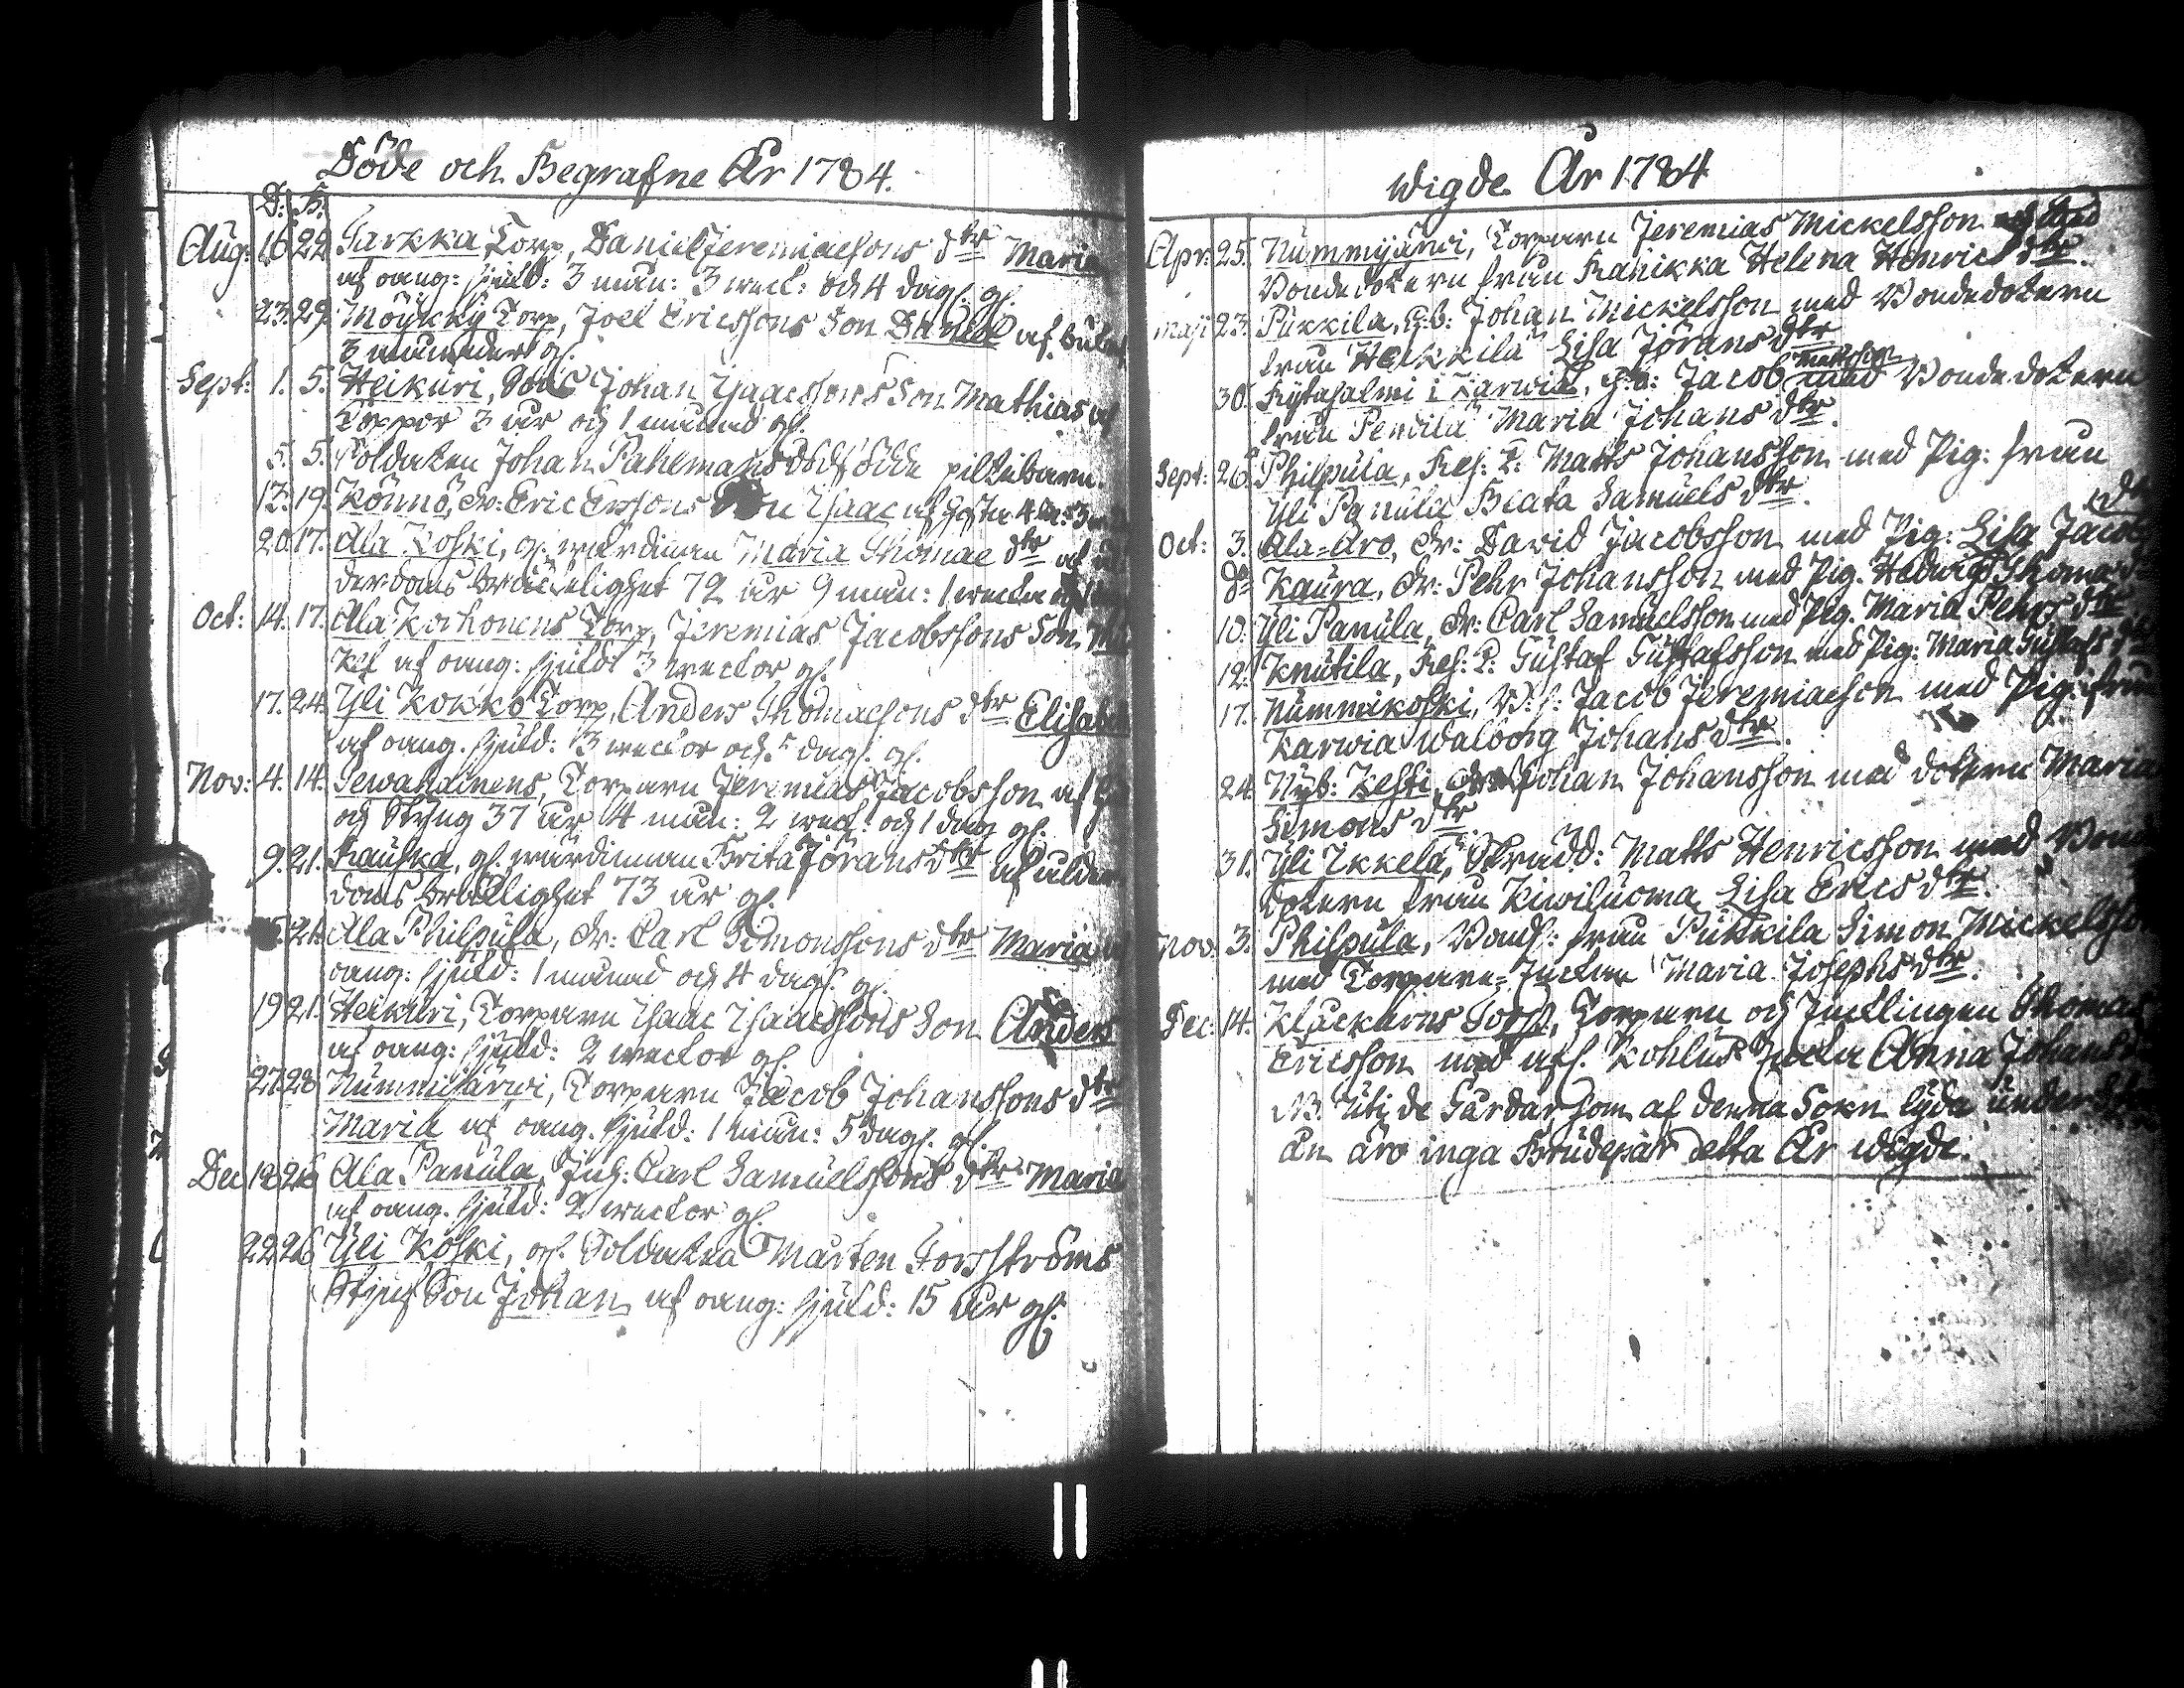 Döde och Begrafne År 1784.
D: B:
Aug: 16 22 Sarkka Torp, Daniel Jeremiaesons dtr Maria
af oang: sjukd: 3 mån: 3 weck: och 4 dags. gl.
23. 29. Möykky Torp, Joel Ericssons Son Daniel af
3 månader gl.
Sept: 1. 5. Heikuri, Johan Isaacssons Son Mathias af
Koppor 3 år och 1 månad gl.
5. 5. Soldaten Johan Pahlmans dödfödde piltebarn.
13. 19. Könnö, dr: Eric Erssons Son Isaac af
20. 17. Ala Koski, gl. wärdinnan Maria Thomae dtr af ål
derdoms bräckelighet 72 år 9 mån: 1 wecka
Oct: 14. 17. Ala Korhonens Torp, Jeremias Jacobssons Son
kel af oang: sjukd: 3 weckor gl.
17. 24. Yli Kokko Torp, Anders Thomaesons dtr Elisab
af oang. sjukd: 3 weckor och 5 dags. gl.
Nov: 4. 14. Sewakainens, Torparn Jeremias Jacobsson af
och Styng 37 år 4 mån: 2 weck: och 1 dag gl.
9. 21. Kauska, gl. wärdinnan Brita Jörans dtr af ålder
doms bräcklighet 73 år gl.
21. Ala Philpula, dr: Carl Simonssons dtr Maria
oang: sjukd: 1 månad och 4 dags. gl.
19 21. Heikuri, Torparn Isaac Isaacssons Son Anders
af oang: sjukd: 2 weckor gl.
27 28 Nummijärwi, Torparn Jacob Johanssons dtr
Maria af oang. sjukd: 1 mån: 5 dags. gl.
Dec 18 26 Ala Panula, Inh: Carl Samuelssons dtr Maria
af oang. sjukd: 2 weckor gl.
22 26 Yli Koski, gl. Soldatens Mårten Forsströms
Styf Son Johan af oang: sjukd: 15 år gl.
Wigde År 1784
Apr: 25. Nummijärwi, Torparn Jeremias Mickelsson med
Bondedotern från Rahikka Helena Henrics dtr.
Maji 23. Pukkila, G.b: Johan Mickelsson med Bondedotern
från Heikkilä Lisa Jörans dtr
Mattsson
30. Kytösalmi i Karwia, G.b: Jacob med Bondedotern
från Penttilä Maria Johans dtr.
Sept: 26. Philpula, Res: K: Matts Johansson med Pig: från
Yli Panula Beata Samuels dtr.
dtr
Oct: 3. Ala-Aro, dr: David Jacobsson med Pig: Lisa Jacobs
do Kaura, dr: Pehr Johansson med Pig. Hedwig Thomae
10. Yli Panula, dr: Carl Samuelsson med Pig. Maria Pehrs dtr
12. Knutila, Res: K: Gustaf Gustafsson med Pig: Maria Gustafs dtr
17. Nummikoski, B.s: Jacob Jeremiaeson med Pig: från
Karwia Walborg Johans dtr.
24. Nyb: Kesti, Johan Johansson med dotern Maria
Simons dtr
31. Yli Ikkelä, Skrädd: Matts Henricsson med Bonde
dotern från Kiwiluoma Lisa Erics dtr.
Nov: 3. Philpula, Bonds: från Pukkila Simon Mickelsson
med Torpare-Enkan Maria Josephs dtr.
Dec: 14. Kluckarns Torp, Torparn och Enklingen Thomas
Ericsson med afl. Kohlus Enka Anna Johans
NB. Uti de Gårdar som af denna Sokn lyda under
än äro inga Brudepar detta År wigde.